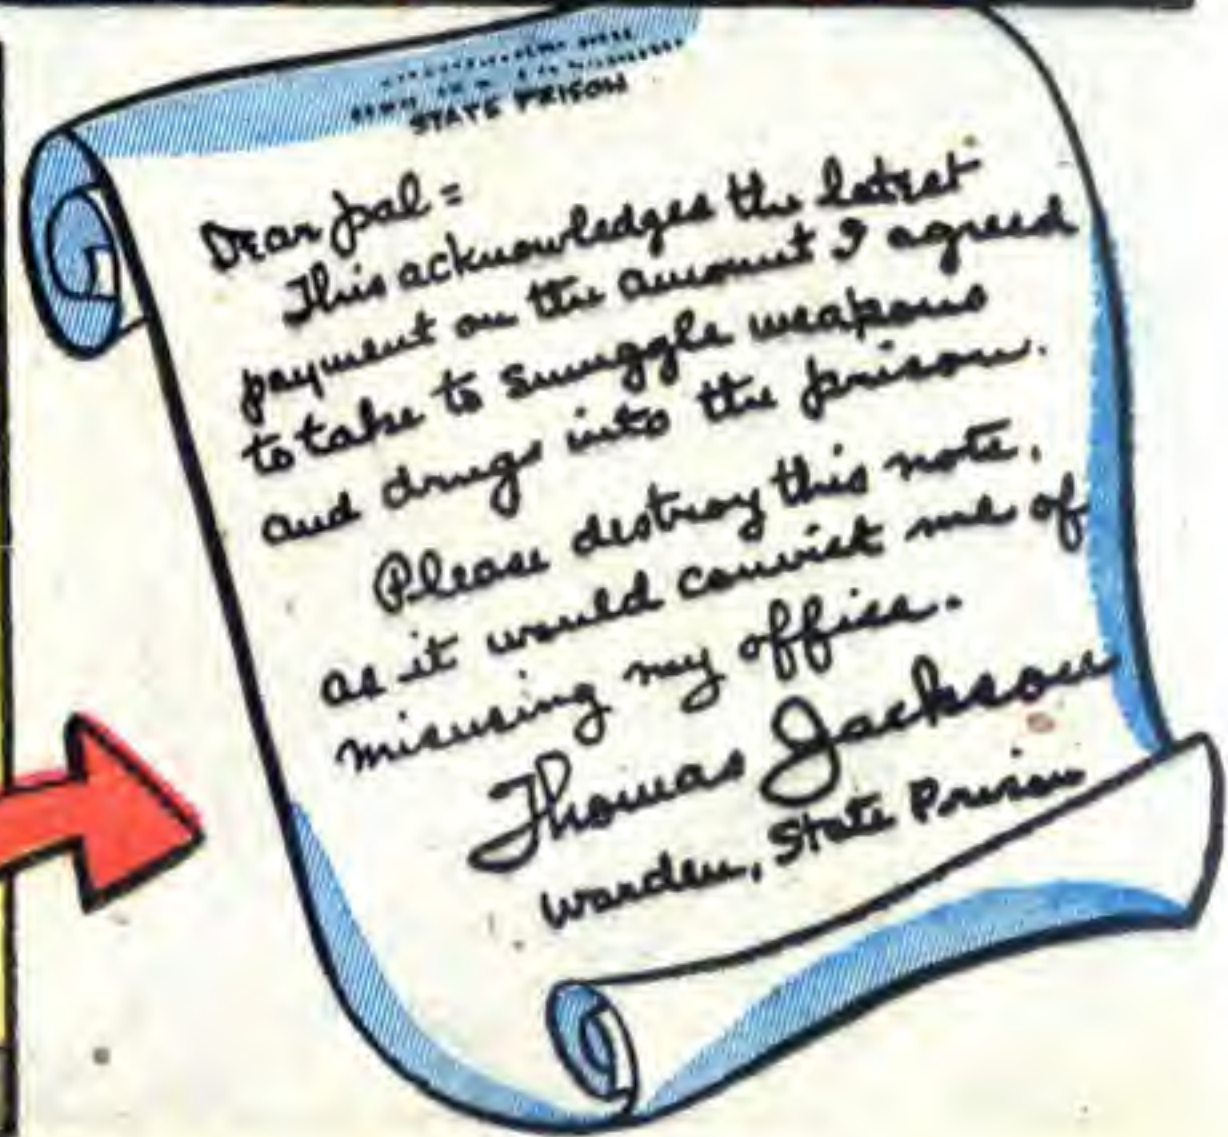 STATE PRISON
Dear pal =
This acknowledges the latest
payment on the amount I agreed
to take to smuggle weapons
and drugs into the prison.
Please destroy this note,
as it would convict me of
misusing my office.
Thomas Jackson
Warden, State Prison